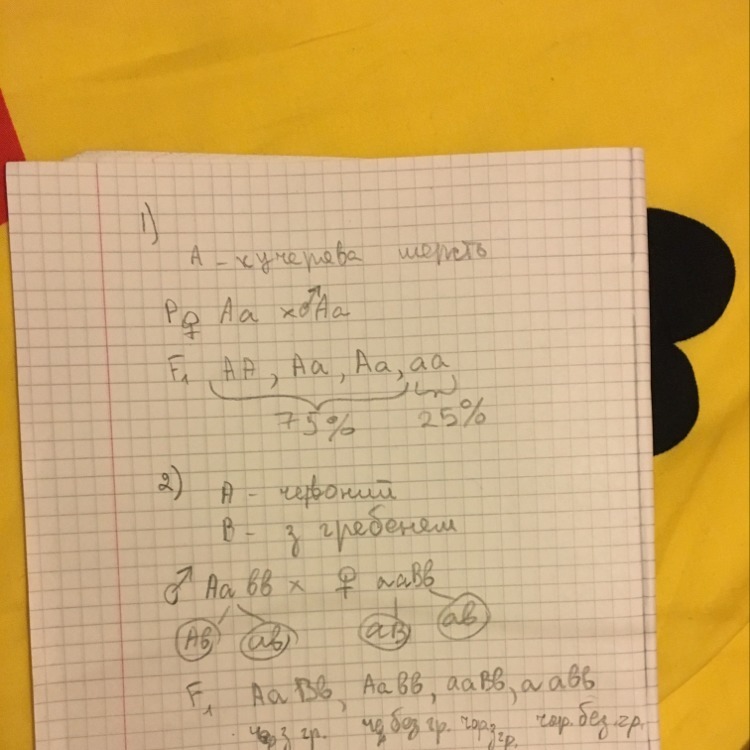 1)
А - кучерява шерсть
P ♀ Aa × ♂ Aa
F₁ AA, Aa, Aa, aa
75% 25%
2) А - червоний
В - з гребенем
♂ Aa bb × ♀ aaBb
Ab ab aB ab
F₁ Aa Bb, Aa bb, aaBb, aabb
чер з гр. чер без гр. чор. з гр. чор. без гр.